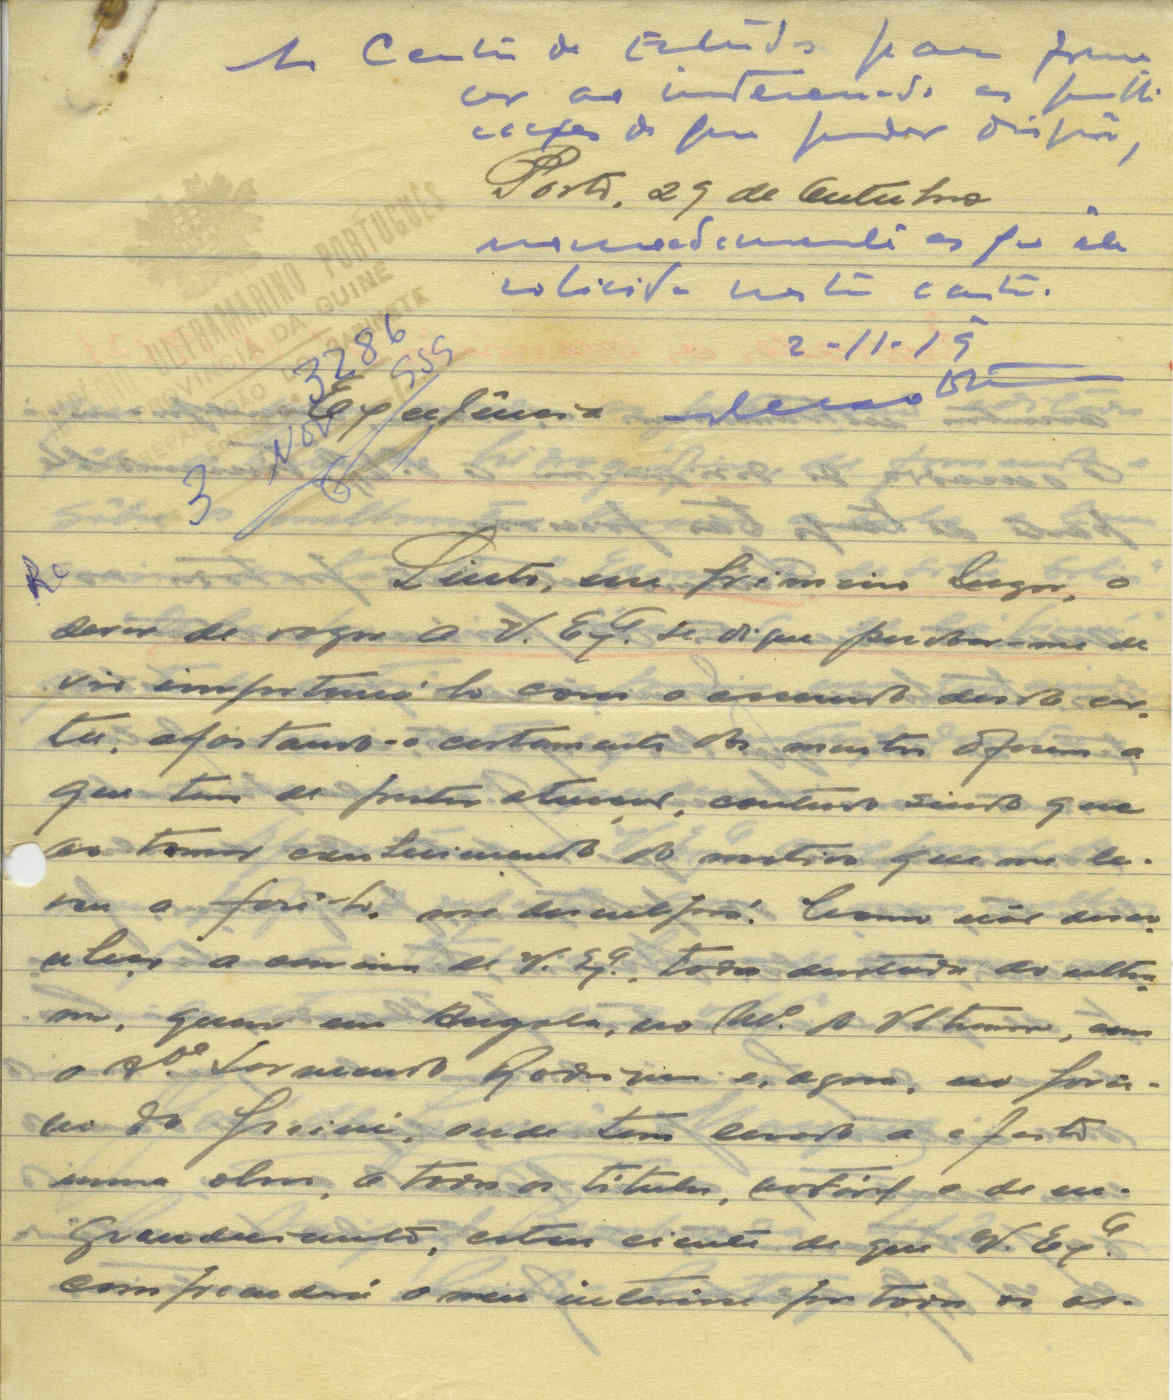 Ao Centro de Estudos para forne
cer ao interessado as publi
cações de que puder dispôr,
Porto, 29 de Outubro
nomeadamente as que êle
solicita nesta carta.
2-11-19
ULTRAMARINO PORTUGUÊS
PROVÍNCIA DA GUINÉ
3286
3 NOV 959
Excelência
Rc
Sinto, em primeiro lugar, o
dever de rogar a V. Exª. se digne perdoar-me de
vir importuná-lo com o assunto desta car-
ta, afastando-o certamente dos muitos afazeres a
que tem de prestar atenção, contudo sinto que
ao tomar conhecimento do motivo que me le-
vou a fazê-lo, me desculpará. Como não desco-
nheço a carreira de V. Exª., toda devotada ao ultra-
mar, quer em Angola, no Mº. do Ultramar, com
o Dr. Sarmento Rodrigues e, agora, no gover-
no da Guiné, onde tem levado a efeito
uma obra, a todos os títulos, notável e de en-
grandecimento, estou ciente de que V. Exª.
compreenderá o meu interesse por todos os as-